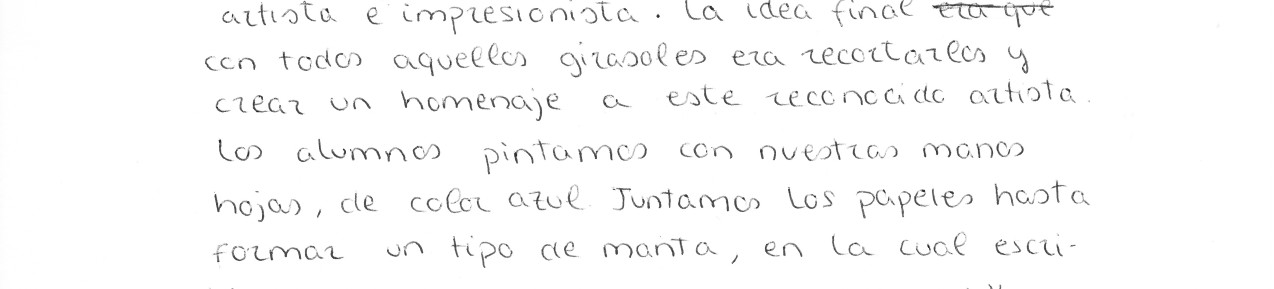 artista e impresionista. La idea final era que
con todos aquellos girasoles era recortarlos y
crear un homenaje a este reconocido artista.
Los alumnos pintamos con nuestras manos
hojas, de color azul. Juntamos los papeles hasta
formar un tipo de manta, en la cual escri-